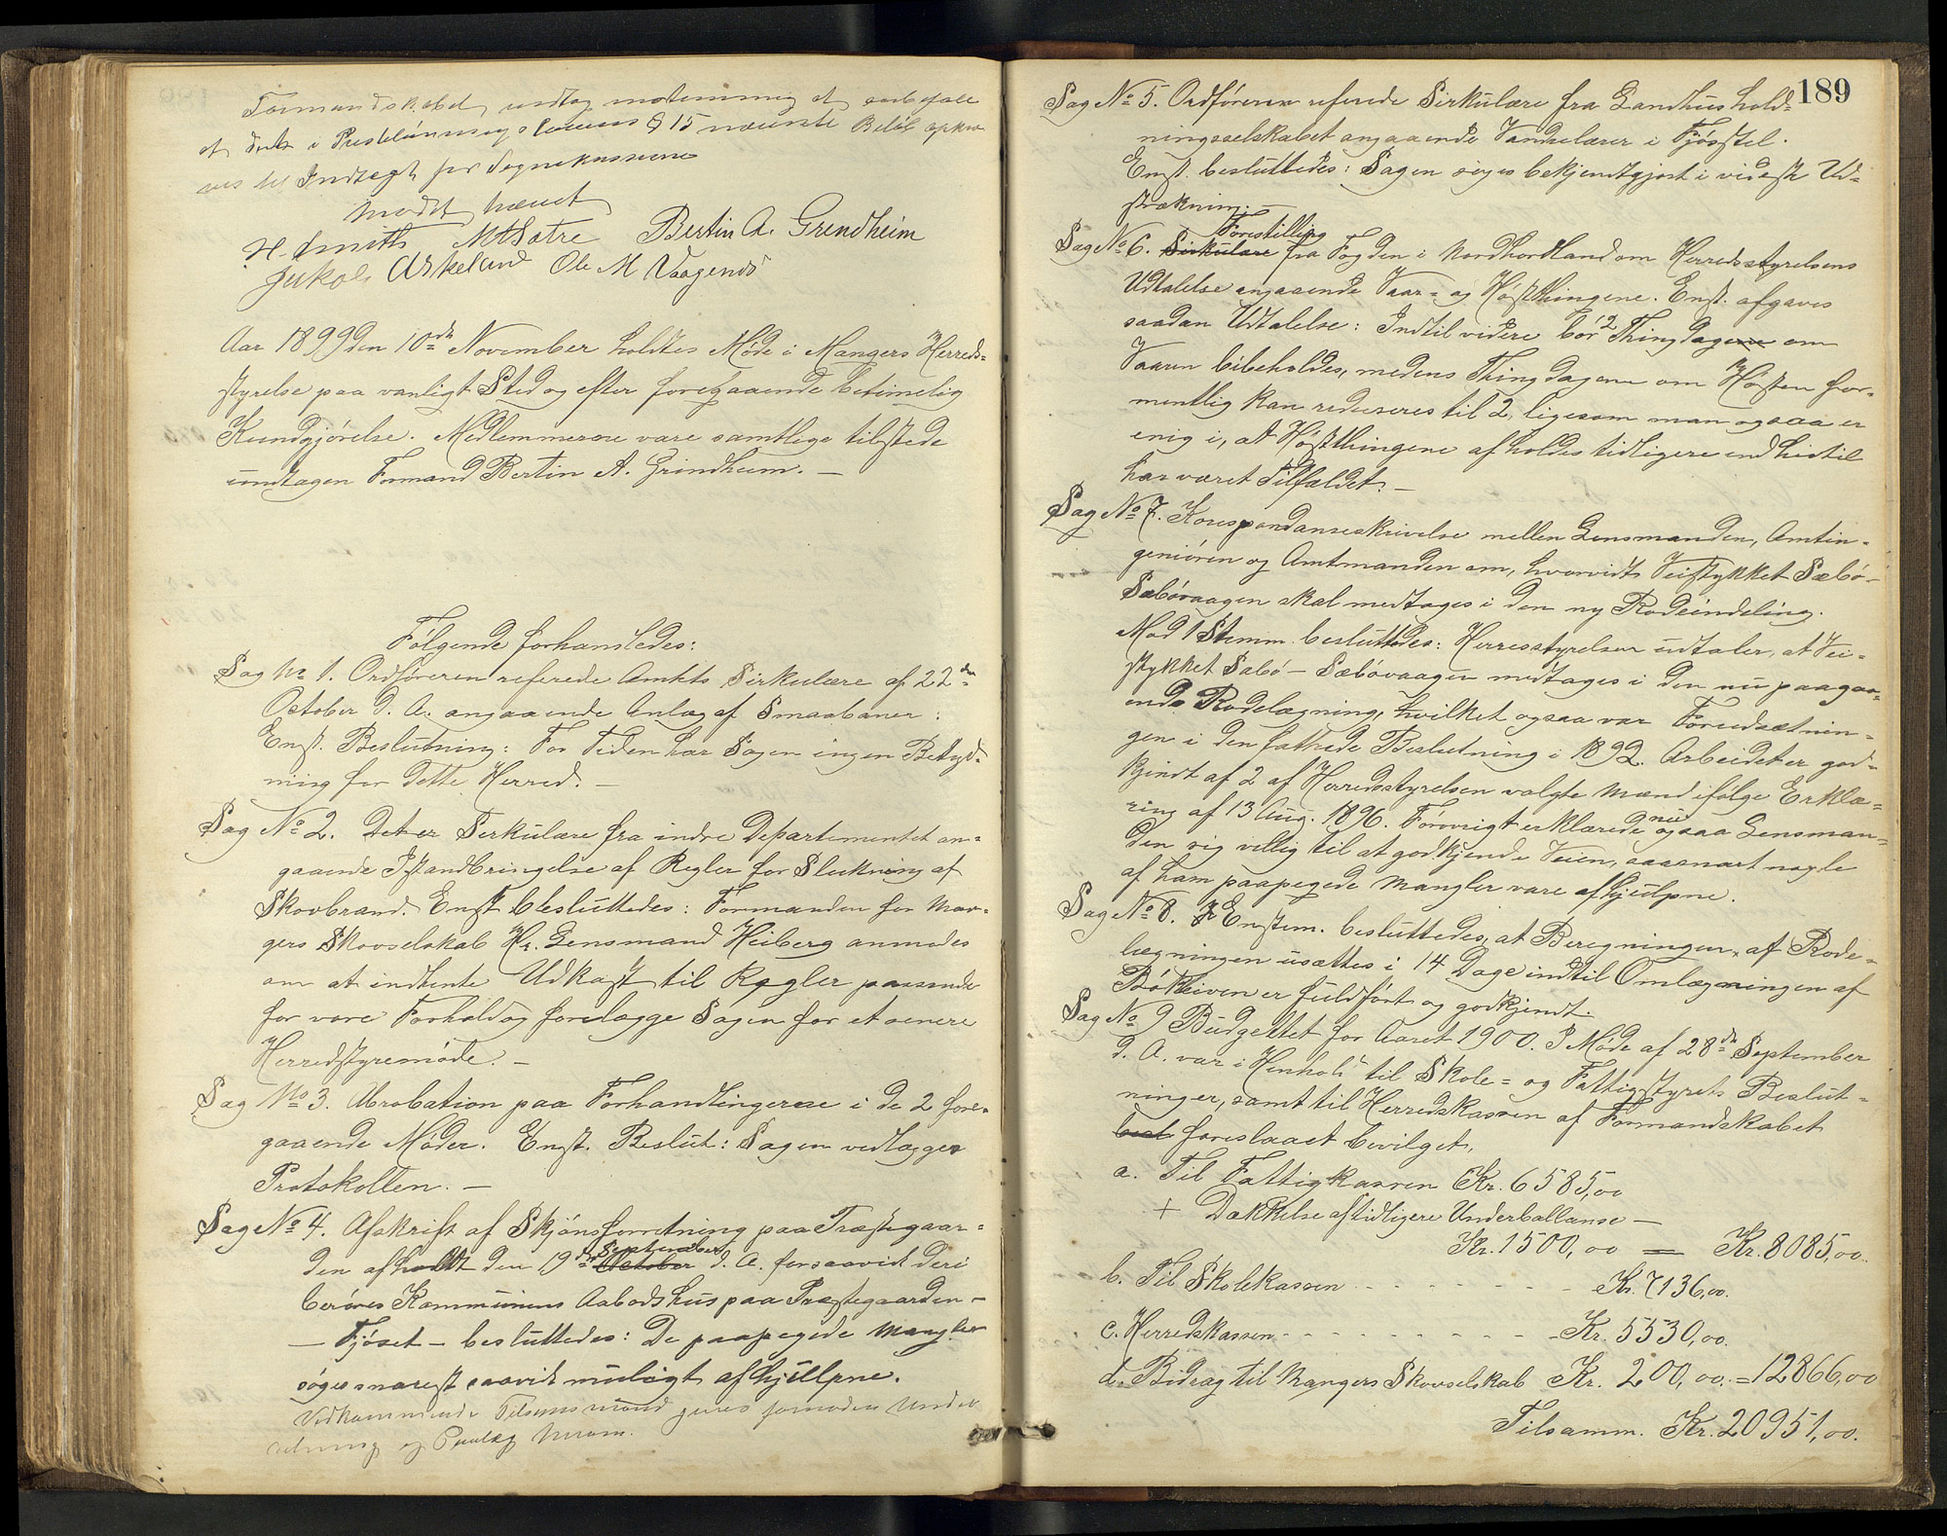 Formandskabet modtog anbefale
at det i Presteløningslovens § 15 nævnte Beløb
ves til Indtægt for Sognekasserne
Mødet hævet
H. Smith M Sætre Bertin A. Grendheim
Jakob Askeland Ole M Vaagenes
Aar 1899 den 10de November holdtes Møde i Mangers Herreds-
styrelse paa vanligt Sted og efter foregaaende betimelig
Kundgjørelse. Medlemmerne vare samtlige tilstede
undtagen Formand Bertin A. Grindheim. —
Følgende forhandledes:
Sag No 1. Ordføreren refererede Amtets Sirkulære af 22de
October d. A. angaaende Anlæg af Smaabaner:
Enst. Beslutning: For Tiden har Sagen ingen Betyd-
ning for dette Herred. —
Sag No 2. Det er Serkulære fra indre Departementet an-
gaaende Istandbringelse af Regler for Slukning af
Skovbrand. Enst besluttedes: Formanden for Man-
gers Skovselskab Hr. Lensmand Heiberg anmodes
om at indhente Udkast til Regler passende
for vore Forhold og forelægge Sagen for et senere
Herredstyremøde. —
Sag No 3. Abrobation paa Forhandlingerne i de 2 fore-
gaaende Møder. Enst. Beslut: Sagen vedlægges
Protokollen. —
Sag No 4. Afskrift af Skjønsforretning paa Præstegaar-
den afholdt den 19de October September d. A. forsaavidt deri
berøres Kommunens Aabodshus paa Præstegaarden —
— Fjøset — besluttedes: De paapegede Mangler
søges snarest saavidt muligt afhjulpne.
Vedkommende Tilsynsmand gives fornøden Under
retning og Paalæg herom.
189
Sag No 5. Ordføreren referede Sirkulære fra Landhushold-
ningsselskabet angaaende Vandrelærer i Fjøsstel.
Enst. besluttedes: Sagen søges bekjendtgjort i videste Ud-
strækning. —
Forestilling
Sag No 6. Sirkulære fra Fogden i Nordhordland om Herredsstyrelsens
Udtalelse angaaende Vaar- og Høstthingene. Enst. afgaves
saadan Udtalelse: Indtil videre bør 2 Thingdagene om
Vaaren bibeholdes, medens Thingdagene om Høsten for-
mentlig kan reduseres til 2, ligesom man ogsaa er
enig i, at Høstthingene afholdes tidligere end hidtil
har været Tilfældet. —
Sag No 7. Korespondanseskrivelse mellen Lensmanden, Amtin-
geniören og Amtmanden om, hvorvidt Veistykket Sæbø-
Sæbøvaagen skal medtages i den ny Rodeinddeling.
Mod 1 Stemm besluttedes: Herresstyrelsen udtaler, at Vei-
stykket Sæbø — Sæbøvaagen medtages i den nu paagaa-
ende Rodelægning, hvilket ogsaa var Forudsætnin-
gen i den fattede Beslutning i 1892. Arbeidet er god-
kjendt af 2 af Herredsstyrelsen valgte Mænd ifølge Erklæ-
ring af 13 Aug. 1896. Forøvrigt erklærede nu ogsaa Lensman-
den sig villig til at godkjende Veien, saasnart nogle
af ham paapegede Mangler vare afhjulpne.
Sag No 8. Enstem. besluttedes, at Beregningen af Rode-
lægningen usættes i 14 Dage indtil Omlægningen af
Bøkleiven er fuldført og godkjendt.
Sag No 9 Budgettet for Aaret 1900. I Møde af 28de September
d. A. var i Henhold til Skole- og Fattigstyrets Beslut-
ninger, samt til Herredskassen af Formandskabet
besl foreslaaet bevilget,
a. Til Fattigkassen Kr. 6585,00
+ Dækkelse af tidligere Underballanse —
Kr. 1500,00 = Kr. 8085,00.
b. Til Skolekassen - - - - - - - Kr. 7136,00.
c. Herredskassen - - - - - - - - - Kr. 5530,00.
d. Bidrag til Mangers Skovselskab Kr. 200,00. = 12866,00
Tilsamm. Kr. 20951,00.